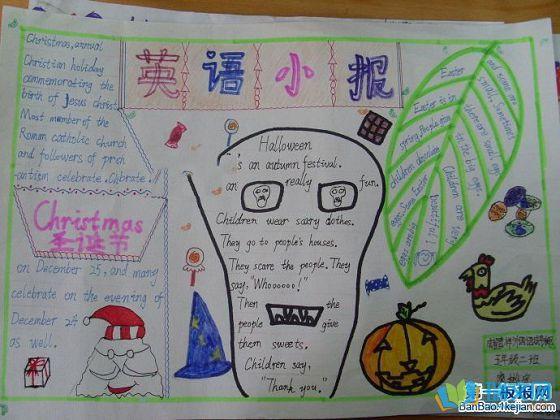 英语小报
Christmas, annual
Christian holiday
commemorating the
birth of Jesus christ
Most member of the
Roman catholic church
and followers of
celebrate.
Christmas
圣诞节
on December 25, and many
celebrate on the evening of
December 24
as well.
Halloween
is an autumn festival.
an really fun.
Children wear scary clothes.
They go to people's houses.
They scare the people. They
say, "Whoooooo!"
Then the
people give
them sweets.
Children say,
"Thank you."
Easter
Easter is in
spring. People
children chocolate
eggs. Some Easter
eggs are
beautiful!
and some are
small. Sometimes
there are small eggs
in the big eggs.
Children are very
五年级二班
板报网
BanBao.1kejian.com